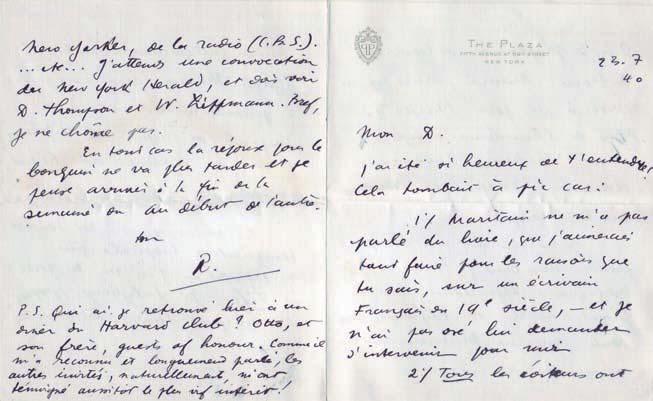 New Yorker, de la radio (C.B.S.).
...etc... J'attends une convocation
du New York Herald, et dois voir
D. Thompson et W. Lippmann. Bref,
je ne chôme pas.
En tout cas la réponse pour le
ne va plus tarder et je
pense arriver à la fin de la
semaine ou au début de l'autre.
ton
R.
P.S. Qui ai-je retrouvé hier à un
dîner du Harvard Club? Otto, et
son frère, guests of honour. Comme il
m'a reconnu et longuement parlé, les
autres invités, naturellement, m'ont
témoigné aussitôt le plus vif intérêt!
THE PLAZA
FIFTH AVENUE AT 59TH STREET
NEW YORK
23.7
40
Mon D.
J'ai été si heureux de t'entendre!
Cela tombait à pic car:
1°/ Maritain ne m'a pas
parlé du livre, que j'aimerais
tant faire pour les raisons que
tu sais, sur un écrivain
Français du 19e siècle, — et je
n'ai pas osé lui demander
d'intervenir pour moi
2°/ Tous les éditeurs ont